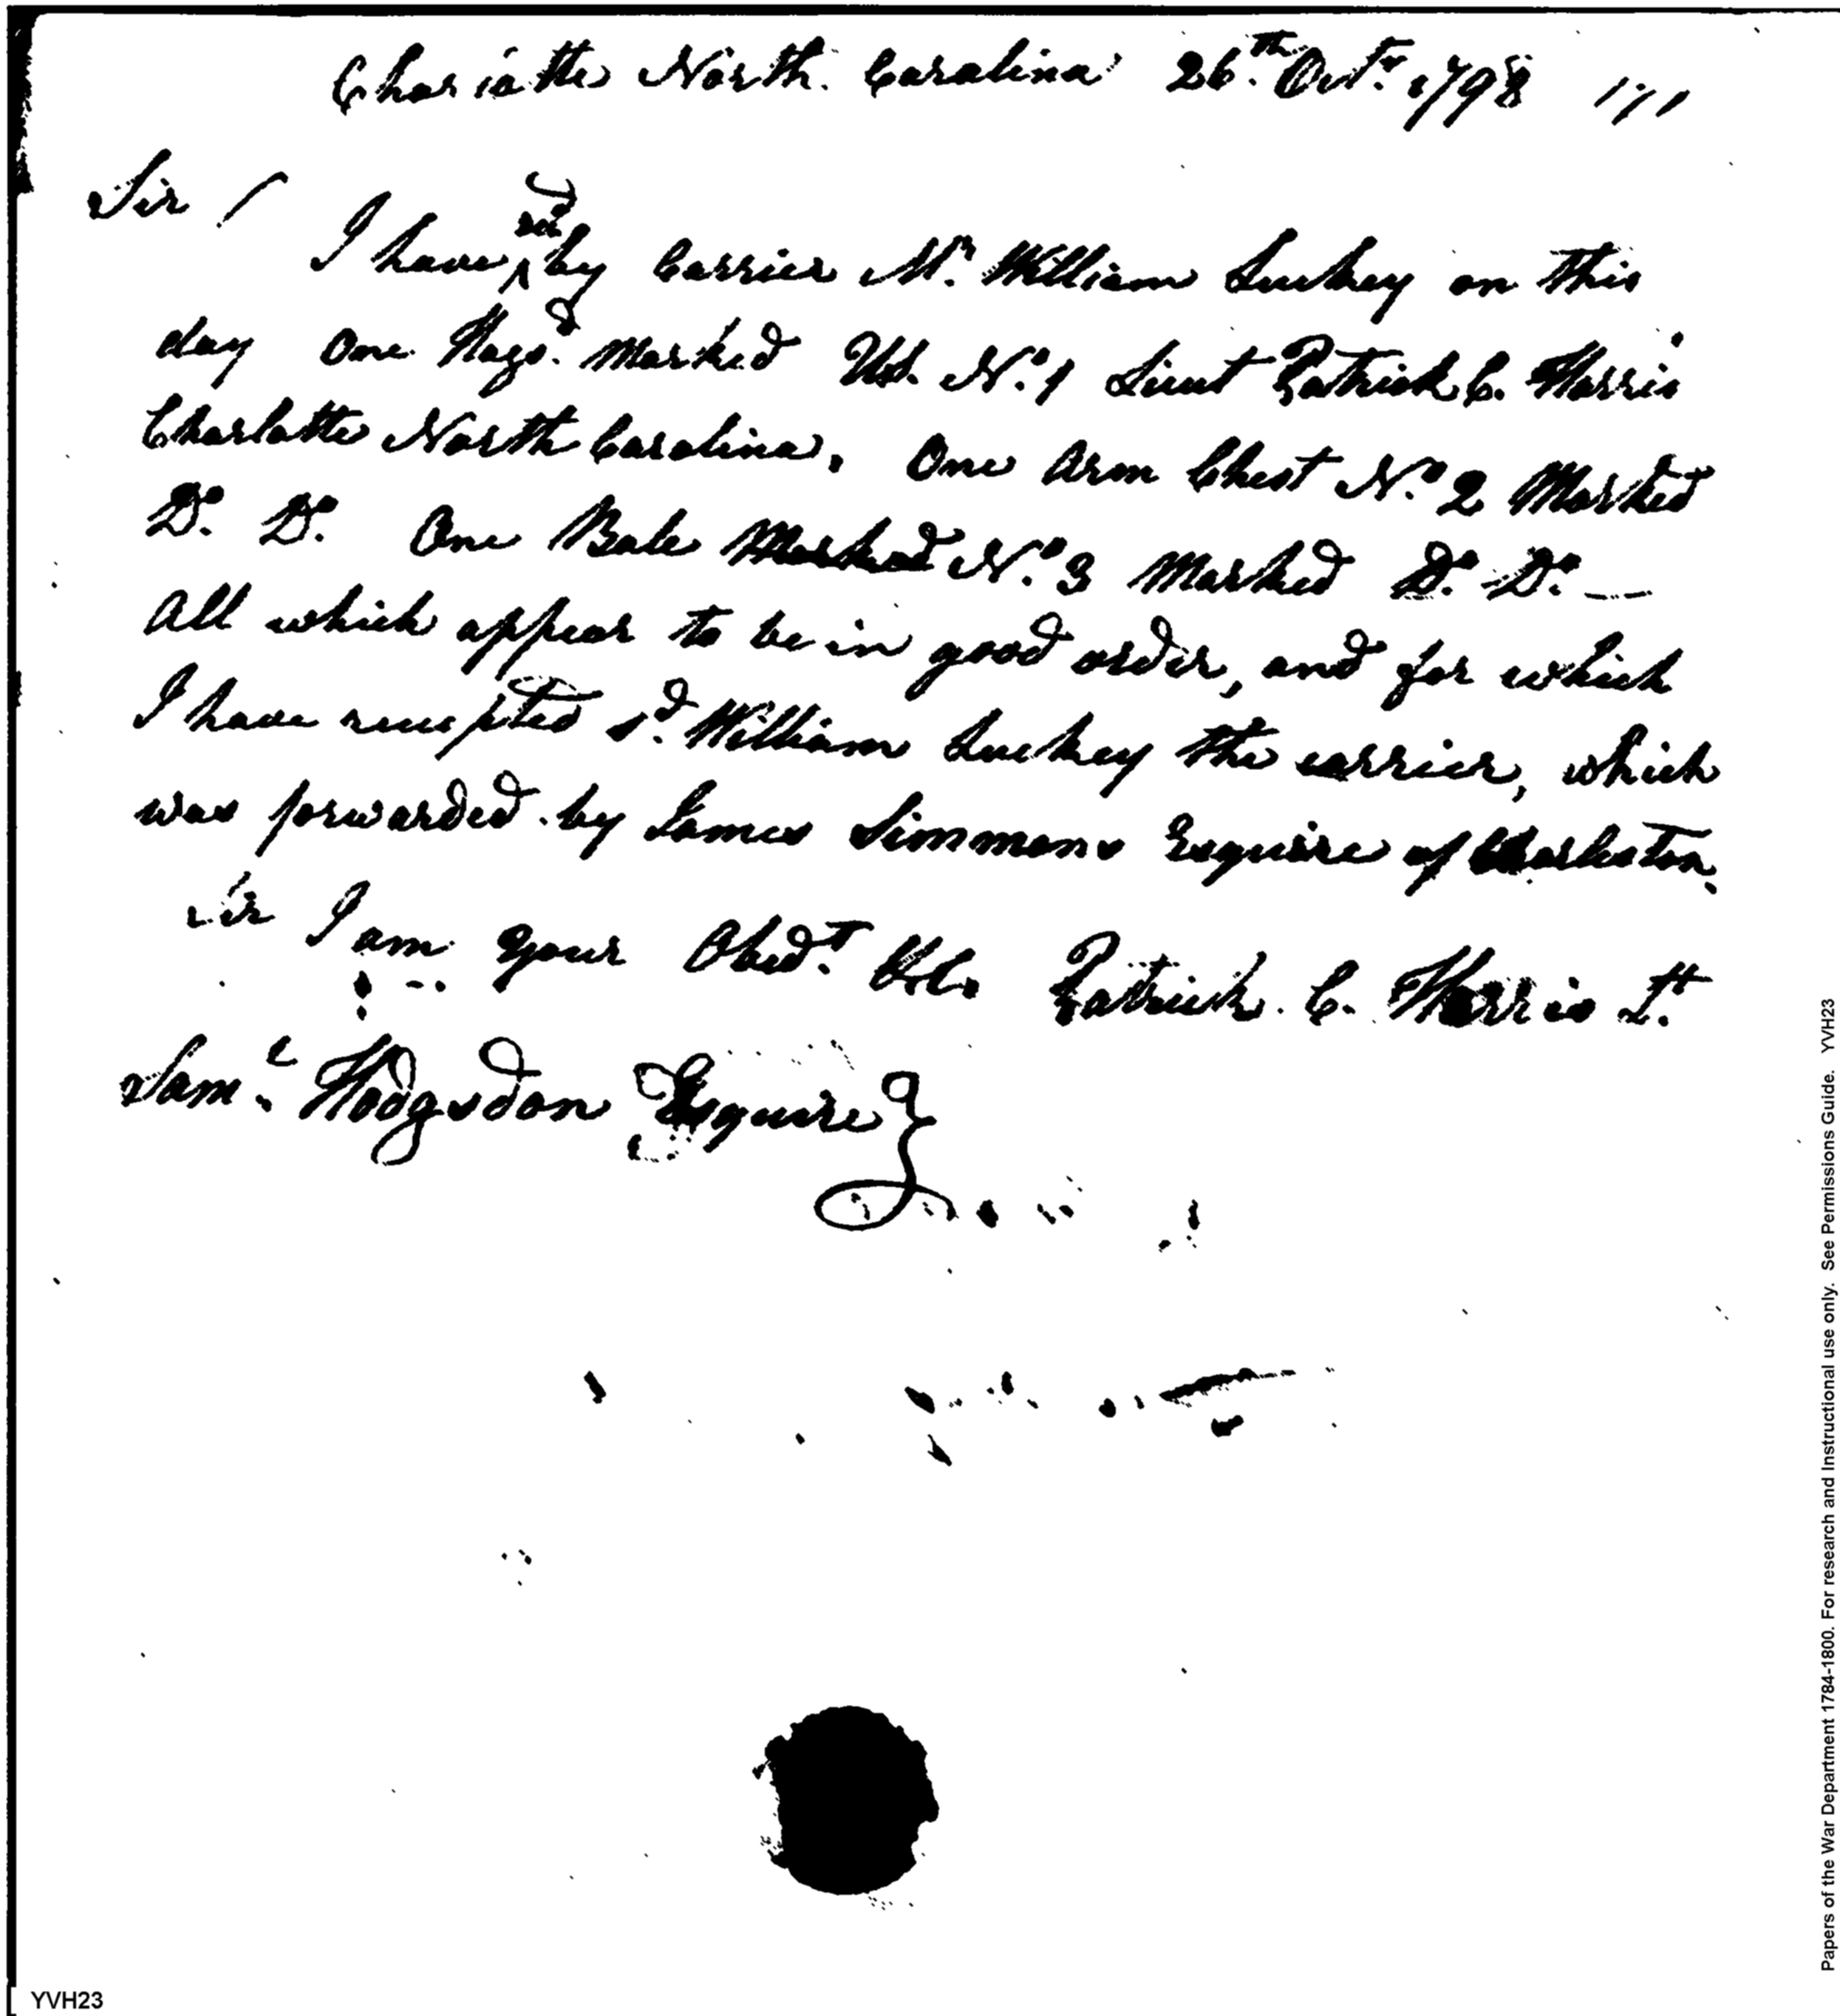 Charlotte North Carolina 26.th Octr. 1798
Sir /
recd
I have ^ by Carrier Mr. William Luckey on this
day One Hogsd. Marked Ud. No. 1 Lieut Patrick C. Harris
Charlotte North Carolina, One Arm Chest No. 2 Marked
Do. Do. One Bale Marked No. 3 Marked Do. Do. —
All which appear to be in good order, and for which
I have receipted sd. William Luckey the carrier, which
was forwarded by James Simmons Esquire of Charleston.
Sir I am your Obedt. Patrick. C. Harris Lt.
Saml. Hodgsdon Esquire
Papers of the War Department 1784-1800. For research and Instructional use only. See Permissions Guide. YVH23
YVH23